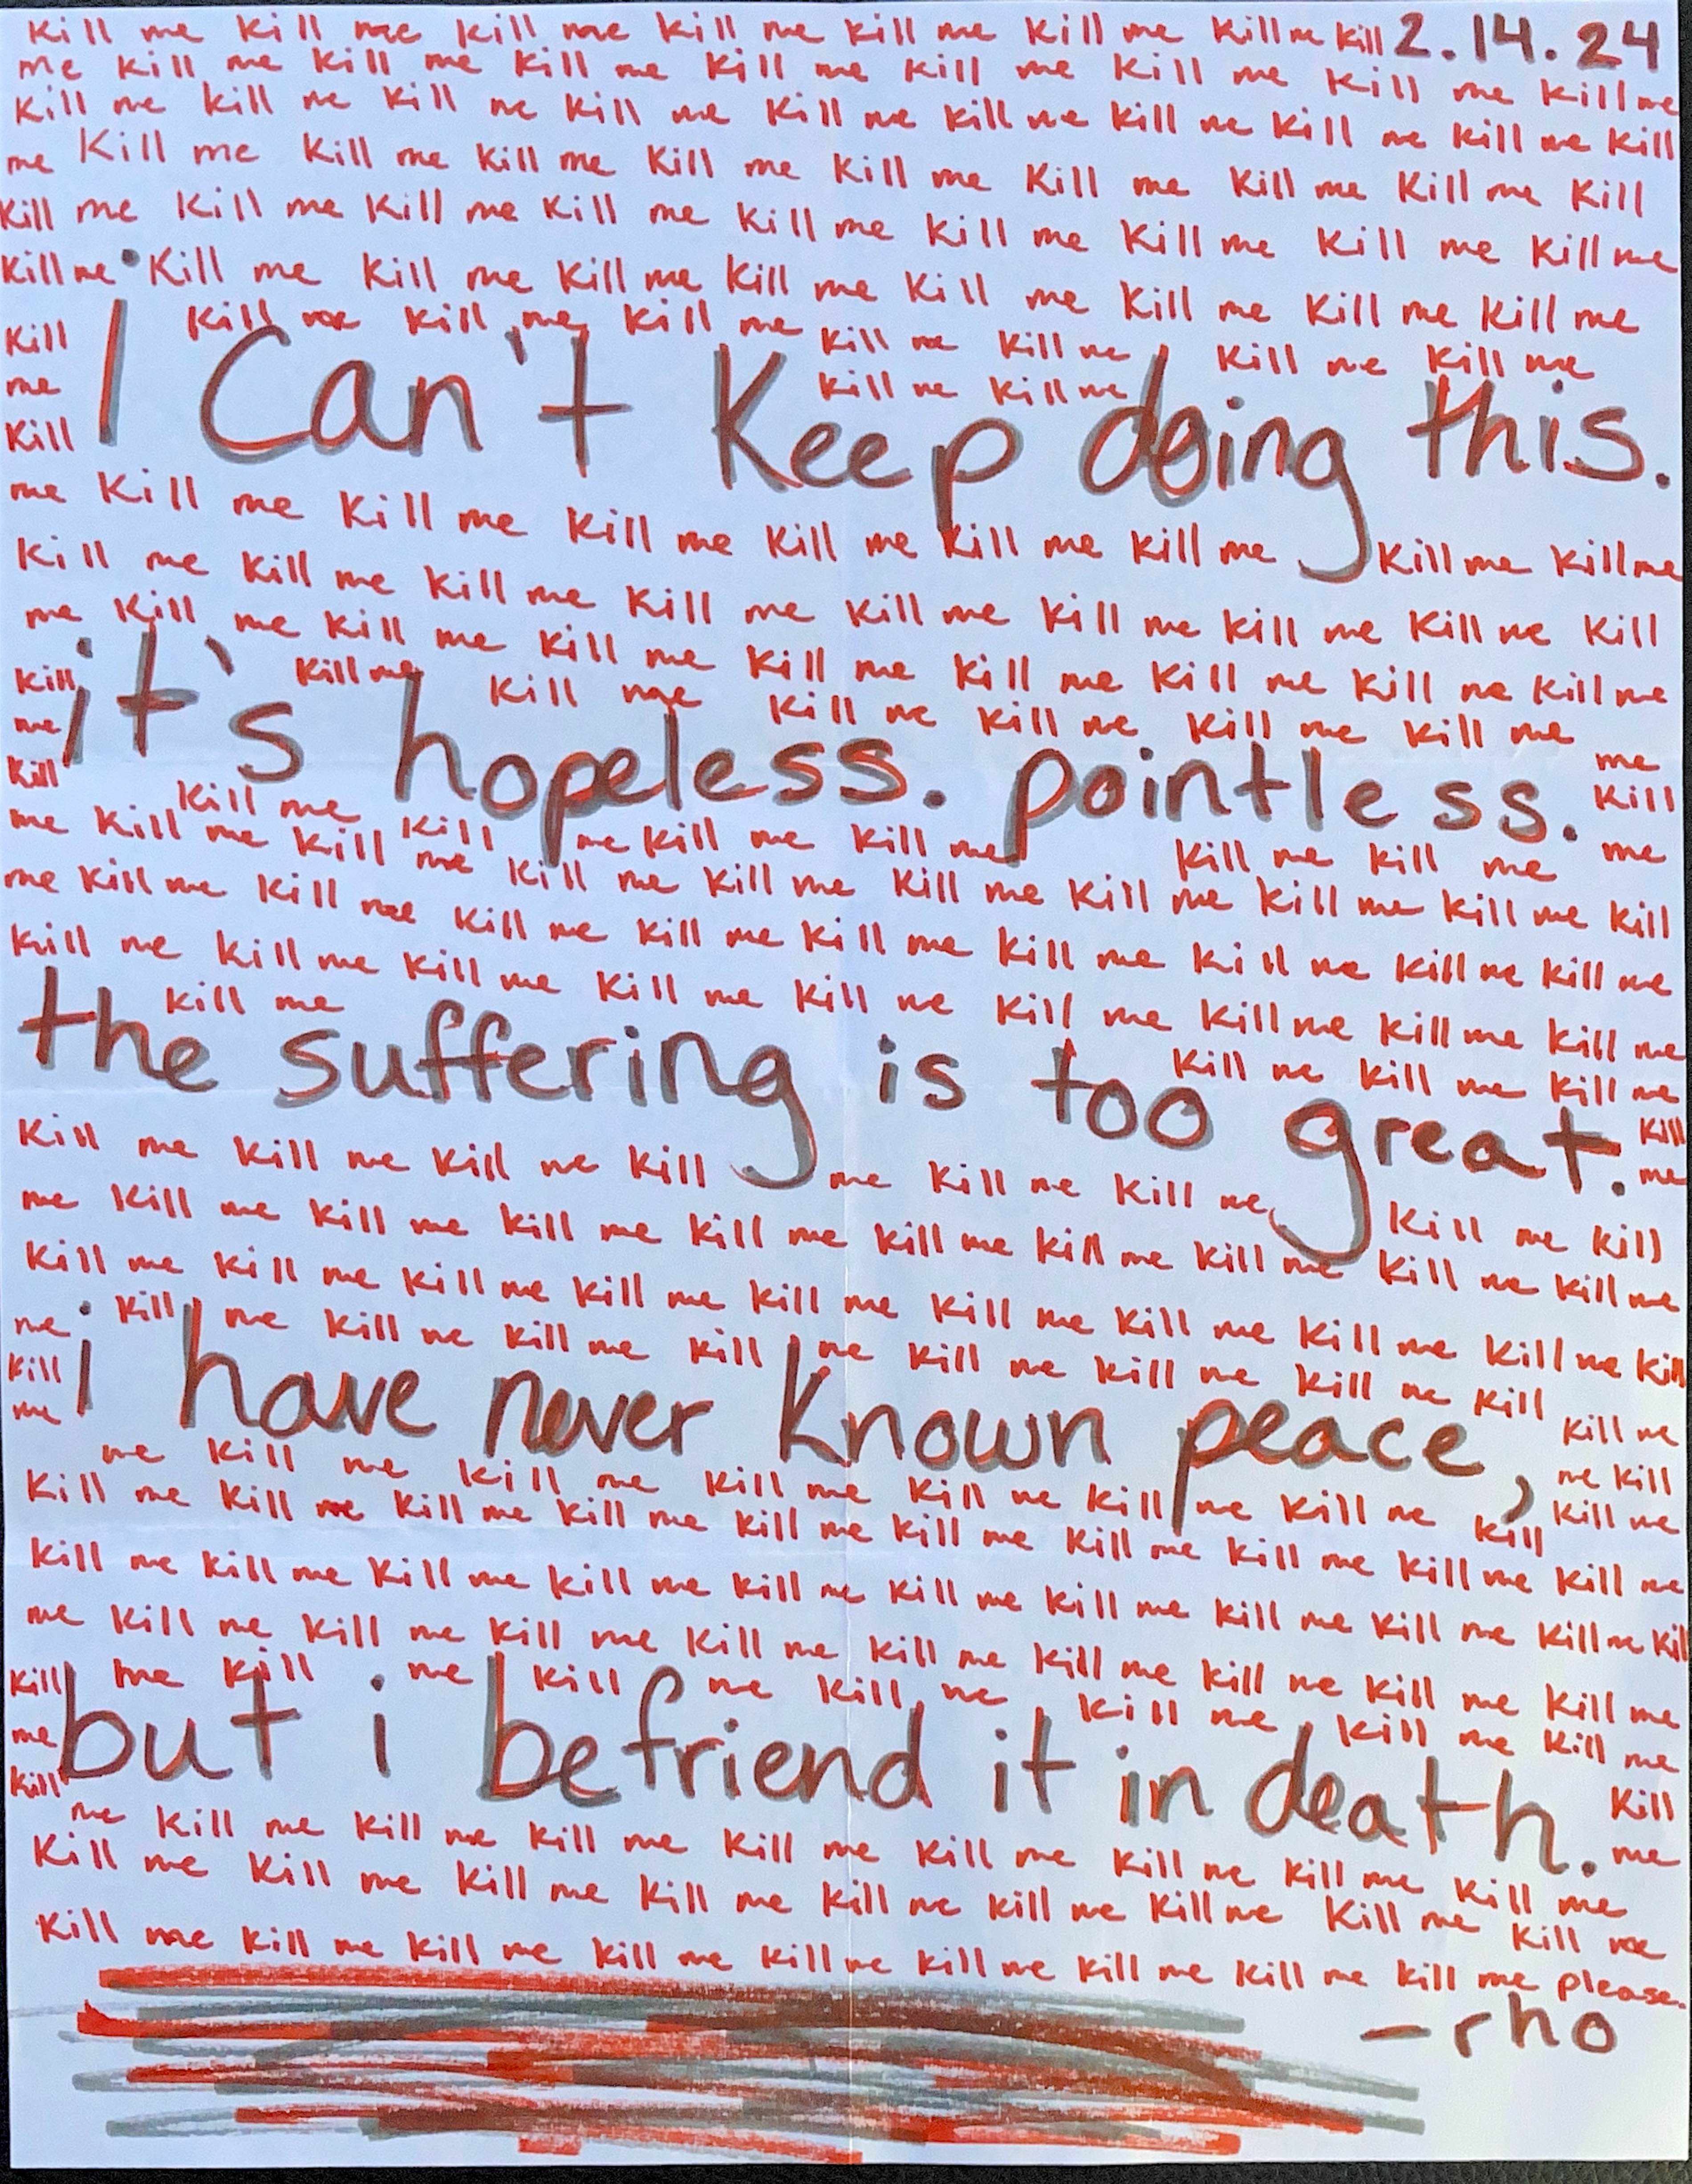 kill me kill me kill me kill me kill me kill me kill me kill 2.14.24
me kill me kill me kill me kill me kill me kill me kill me kill me
kill me kill me kill me kill me kill me kill me kill me kill me kill me kill
me kill me kill me kill me kill me kill me kill me kill me kill me kill
kill me kill me kill me kill me kill me kill me kill me kill me kill me
kill me kill me kill me kill me kill me kill me kill me kill me kill me
kill kill me kill me kill me kill me kill me kill me kill me
me kill me kill me
kill
I can't keep doing this.
me kill me kill me kill me kill me kill me kill me kill me kill me
kill me kill me kill me kill me kill me kill me kill me kill me kill
me kill me kill me kill me kill me kill me kill me kill me kill me
kill kill me kill me kill me kill me kill me kill me
me
kill
it's hopeless. pointless.
me
kill
me
kill me kill me kill me kill me kill me kill me
me kill me kill me kill me kill me kill me kill me kill me kill me kill
me kill me kill me kill me kill me kill me kill me kill me kill me kill me
kill me kill me kill me kill me kill me kill me kill me kill me kill me
kill me kill me kill me kill me
the suffering is too great.
kill
me
kill me kill me kill me kill me kill me kill me kill me kill
me kill me kill me kill me kill me kill me kill me kill me kill me kill me
kill me kill me kill me kill me kill me kill me kill me kill me kill me kill
me kill me kill me kill me kill me kill me kill me kill me kill
kill
me
I have never known peace,
kill me
me kill
kill me
me kill me kill me kill me kill me kill me kill me kill
kill me kill me kill me kill me kill me kill me kill me kill me kill me kill me
kill me kill me kill me kill me kill me kill me kill me kill me kill me kill me kill
me kill me kill me kill me kill me kill me kill me kill me kill me kill me
kill me kill me kill me kill me kill me kill me kill me
me
kill
but i befriend it in death.
kill
me
me kill me kill me kill me kill me kill me kill me kill me kill me
kill me kill me kill me kill me kill me kill me kill me kill me kill me
kill me kill me kill me kill me kill me kill me kill me kill me kill me please.
-rho